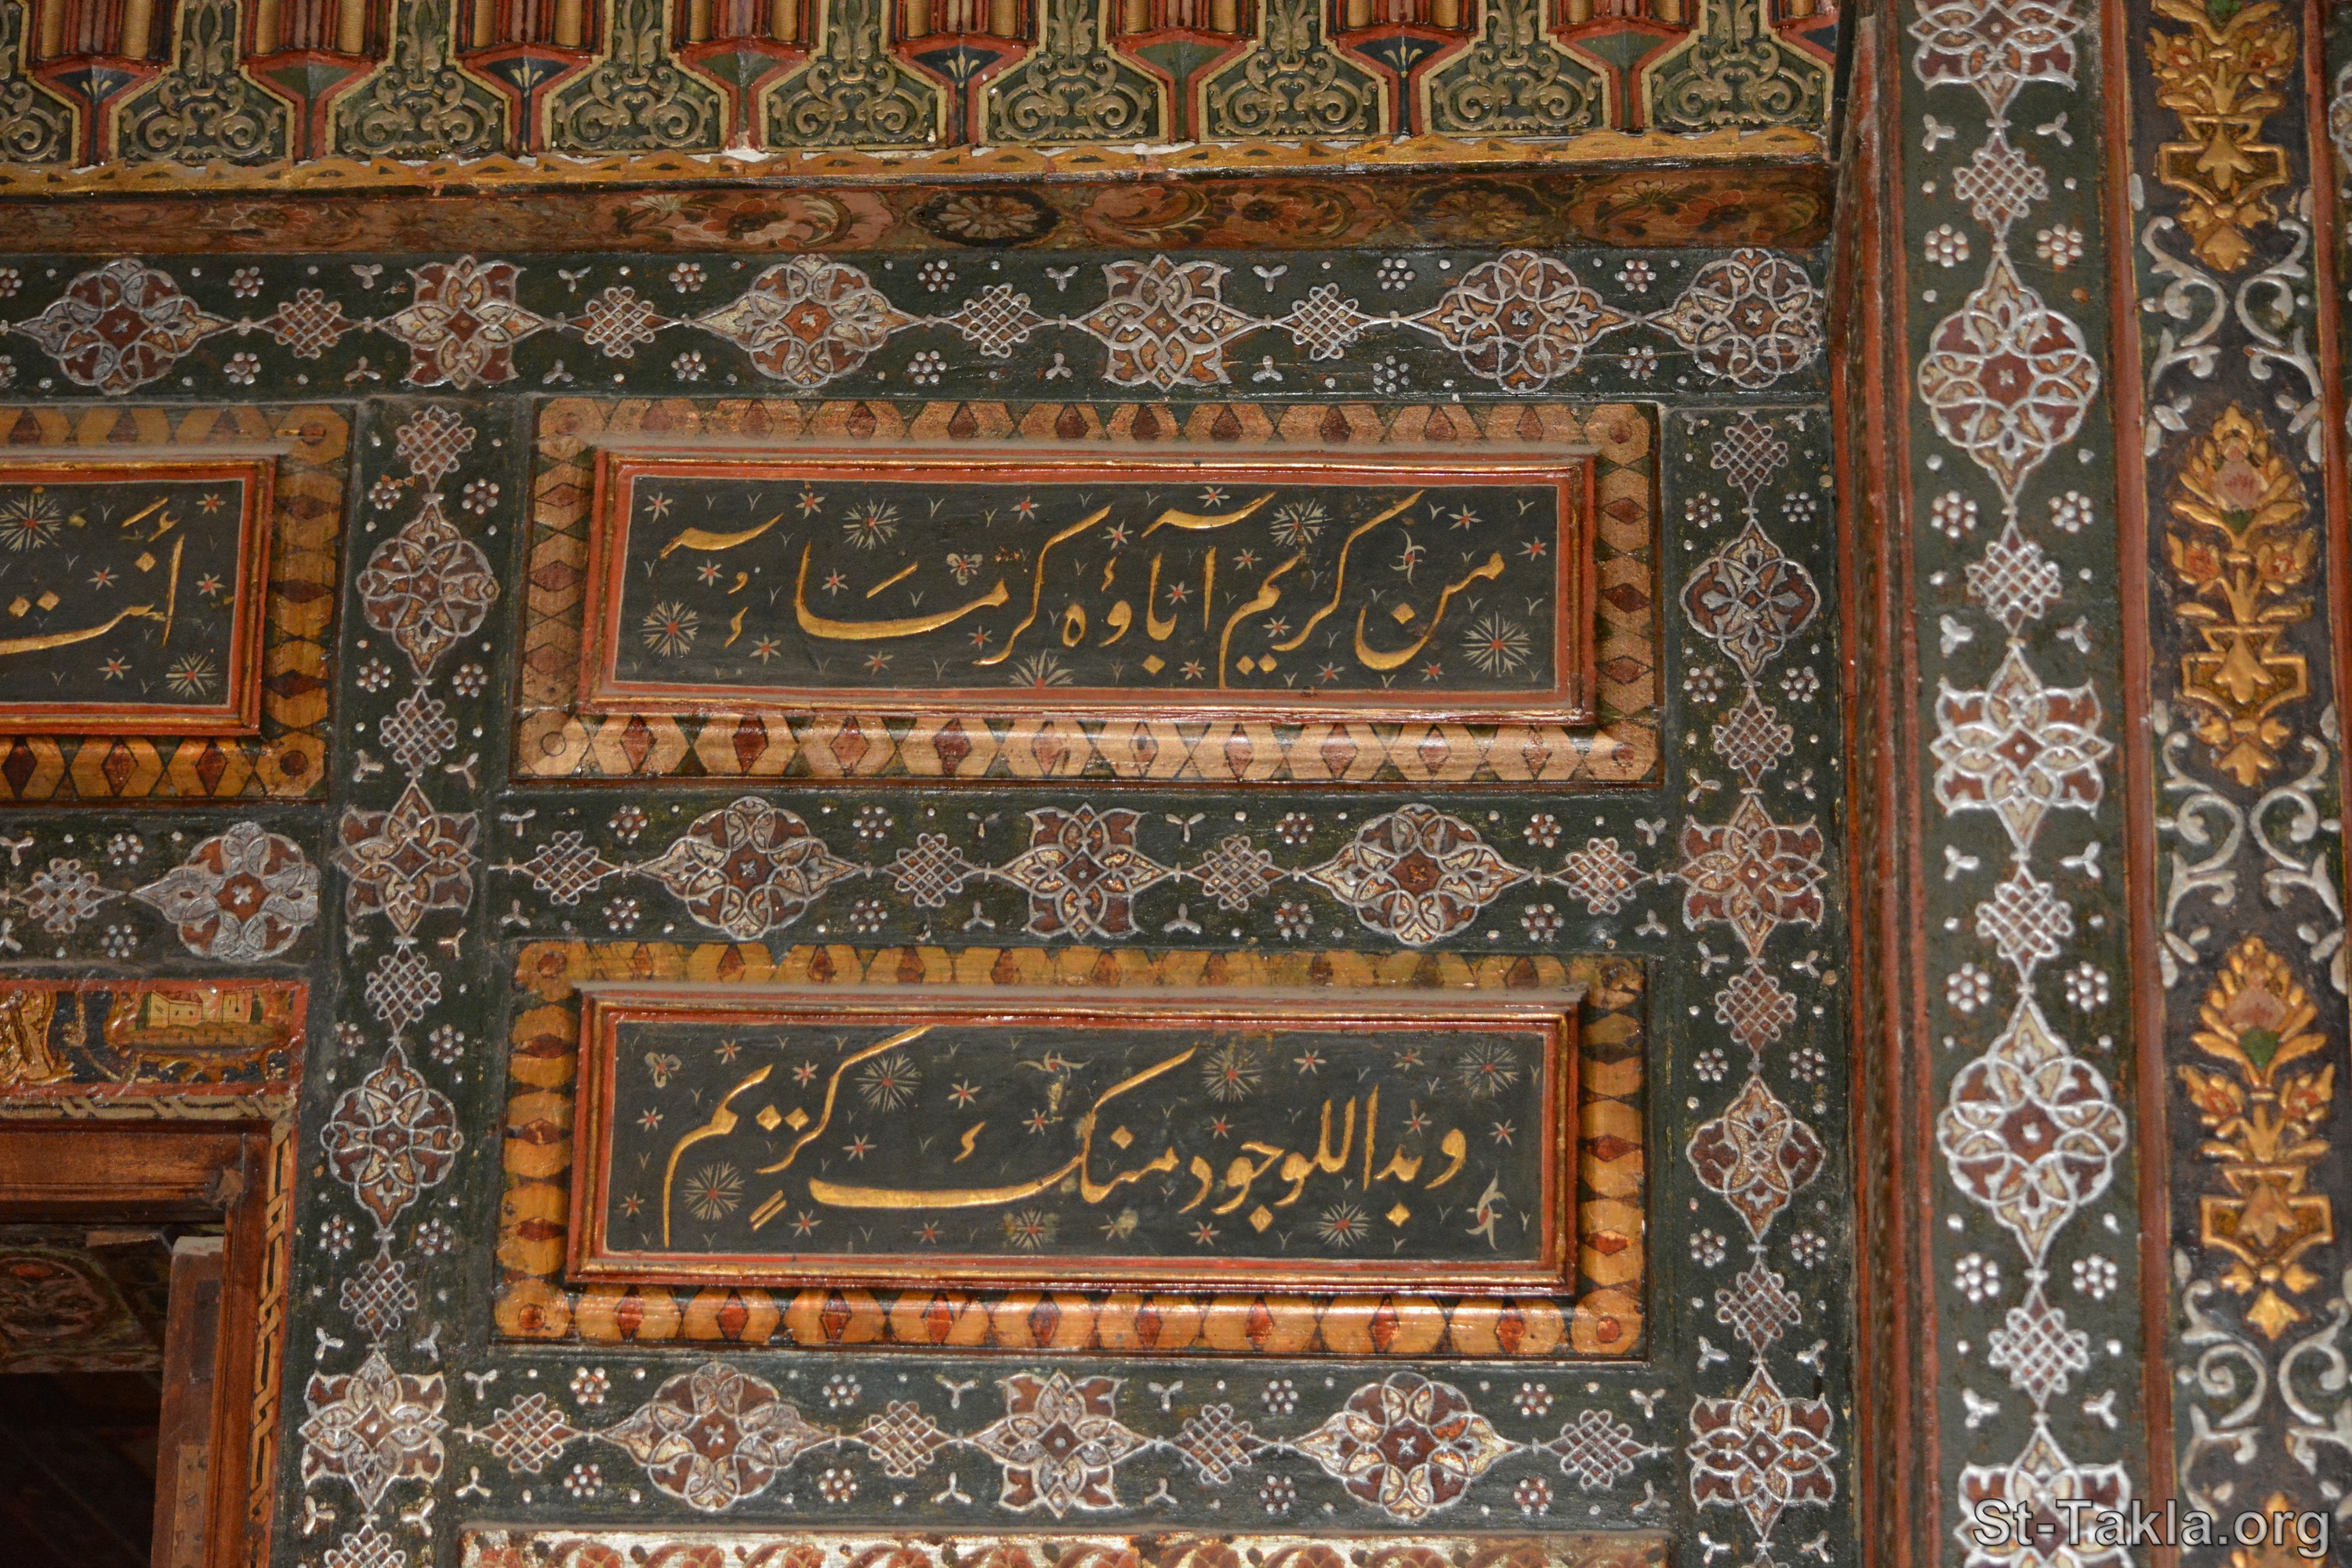 من كريم آباؤه كرماءُ
أنت
وبدا للوجود منك كريم
St-Takla.org